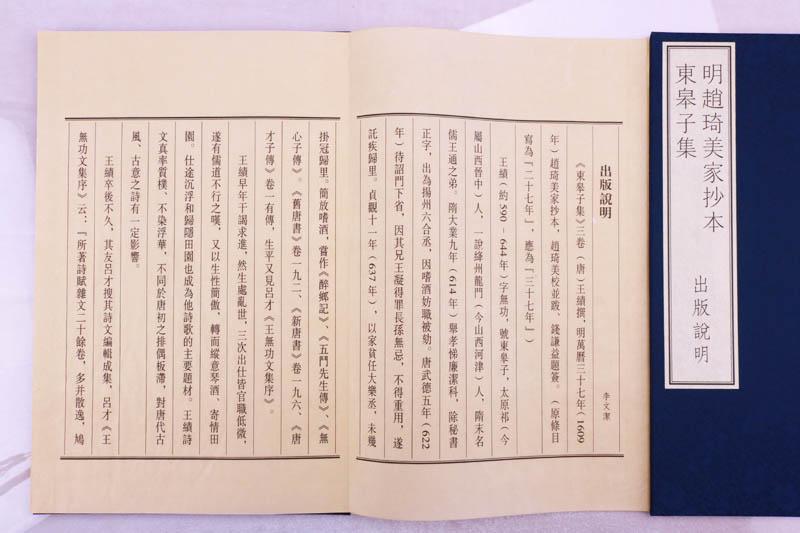 明趙琦美家抄本
東皋子集
出版說明
出版說明
李文潔
《東皋子集》三卷（唐）王績撰，明萬曆三十七年（1609
年）趙琦美家抄本，趙琦美校並跋、錢謙益題簽。（原條目
寫為『二十七年』，應為『三十七年』）
王績（約590－644年）字無功，號東皋子，太原祁（今
屬山西晉中）人，一說絳州龍門（今山西河津）人，隋末名
儒王通之弟。隋大業九年（614年）舉孝悌廉潔科，除秘書
正字，出為揚州六合丞，因嗜酒妨職被劾。唐武德五年（622
年）待詔門下省，因其兄王凝得罪長孫無忌，不得重用，遂
託疾歸里。貞觀十一年（637年），以家貧任大樂丞，未幾
掛冠歸里。簡放嗜酒，嘗作《醉鄉記》、《五鬥先生傳》、《無
心子傳》。《舊唐書》卷一九二、《新唐書》卷一九六、《唐
才子傳》卷一有傳，生平又見呂才《王無功文集序》。
王績早年干謁求進，然生處亂世，三次出仕皆官職低微，
遂有儒道不行之嘆，又以生性簡傲，轉而縱意琴酒、寄情田
園。仕途沉浮和歸隱田園也成為他詩歌的主要題材。王績詩
文真率質樸、不染浮華，不同於唐初之排偶板滯，對唐代古
風、古意之詩有一定影響。
王績卒後不久，其友呂才搜其詩文編輯成集，呂才《王
無功文集序》云：『所著詩賦雜文二十餘卷，多并散逸，鳩